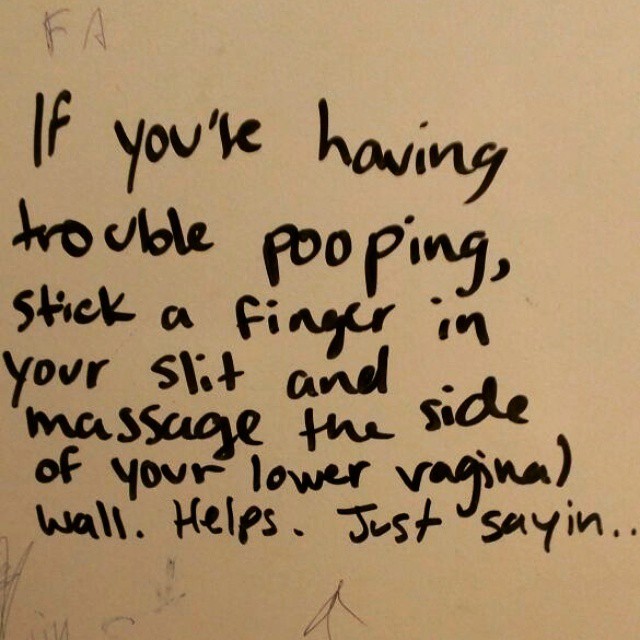 F A
If you're having
trouble pooping,
stick a finger in
your slit and
massage the side
of your lower vaginal
wall. Helps. Just sayin..